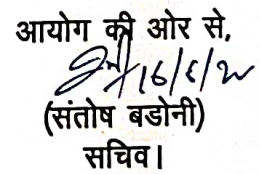 आयोग की ओर से,
16/6/20
(संतोष बडोनी)
सचिव।